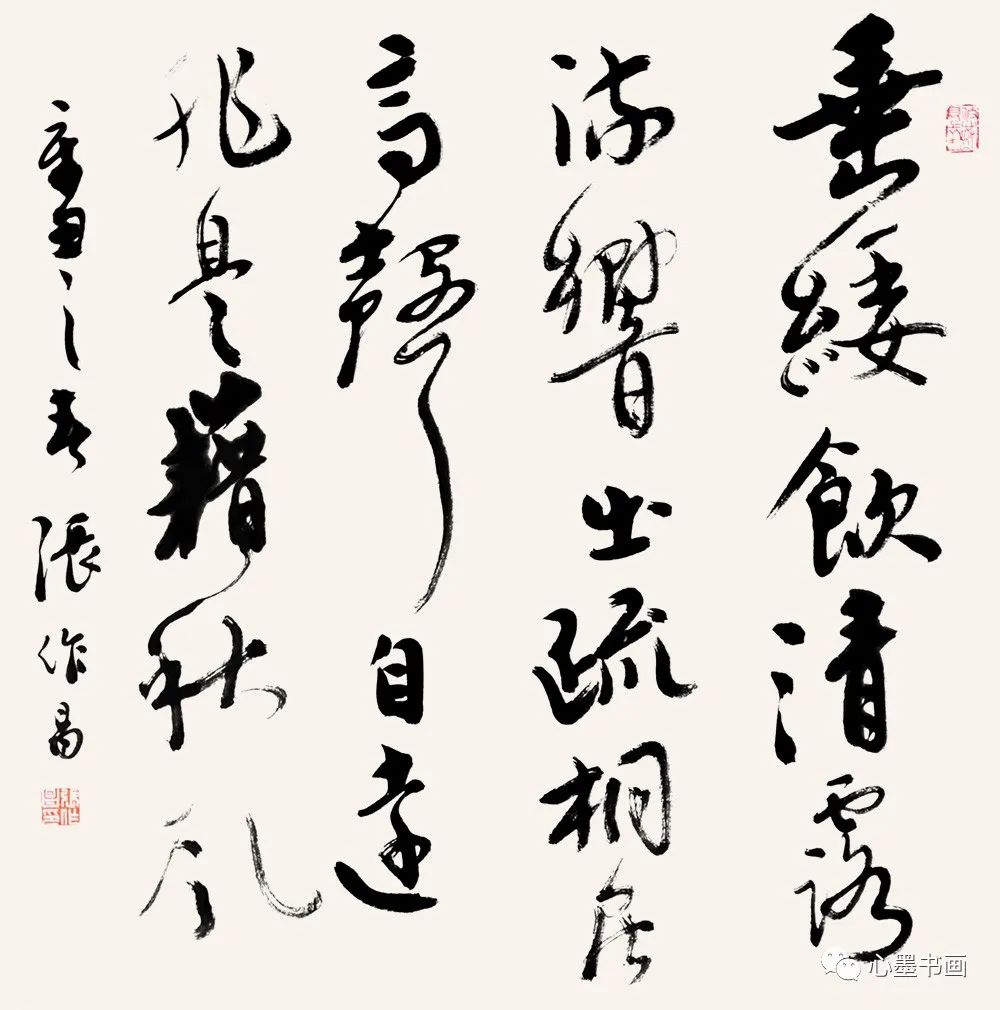 垂緌飲清露
流響出疏桐居
高聲自遠
非是藉秋風
辛丑之春 張作昌
心墨书画